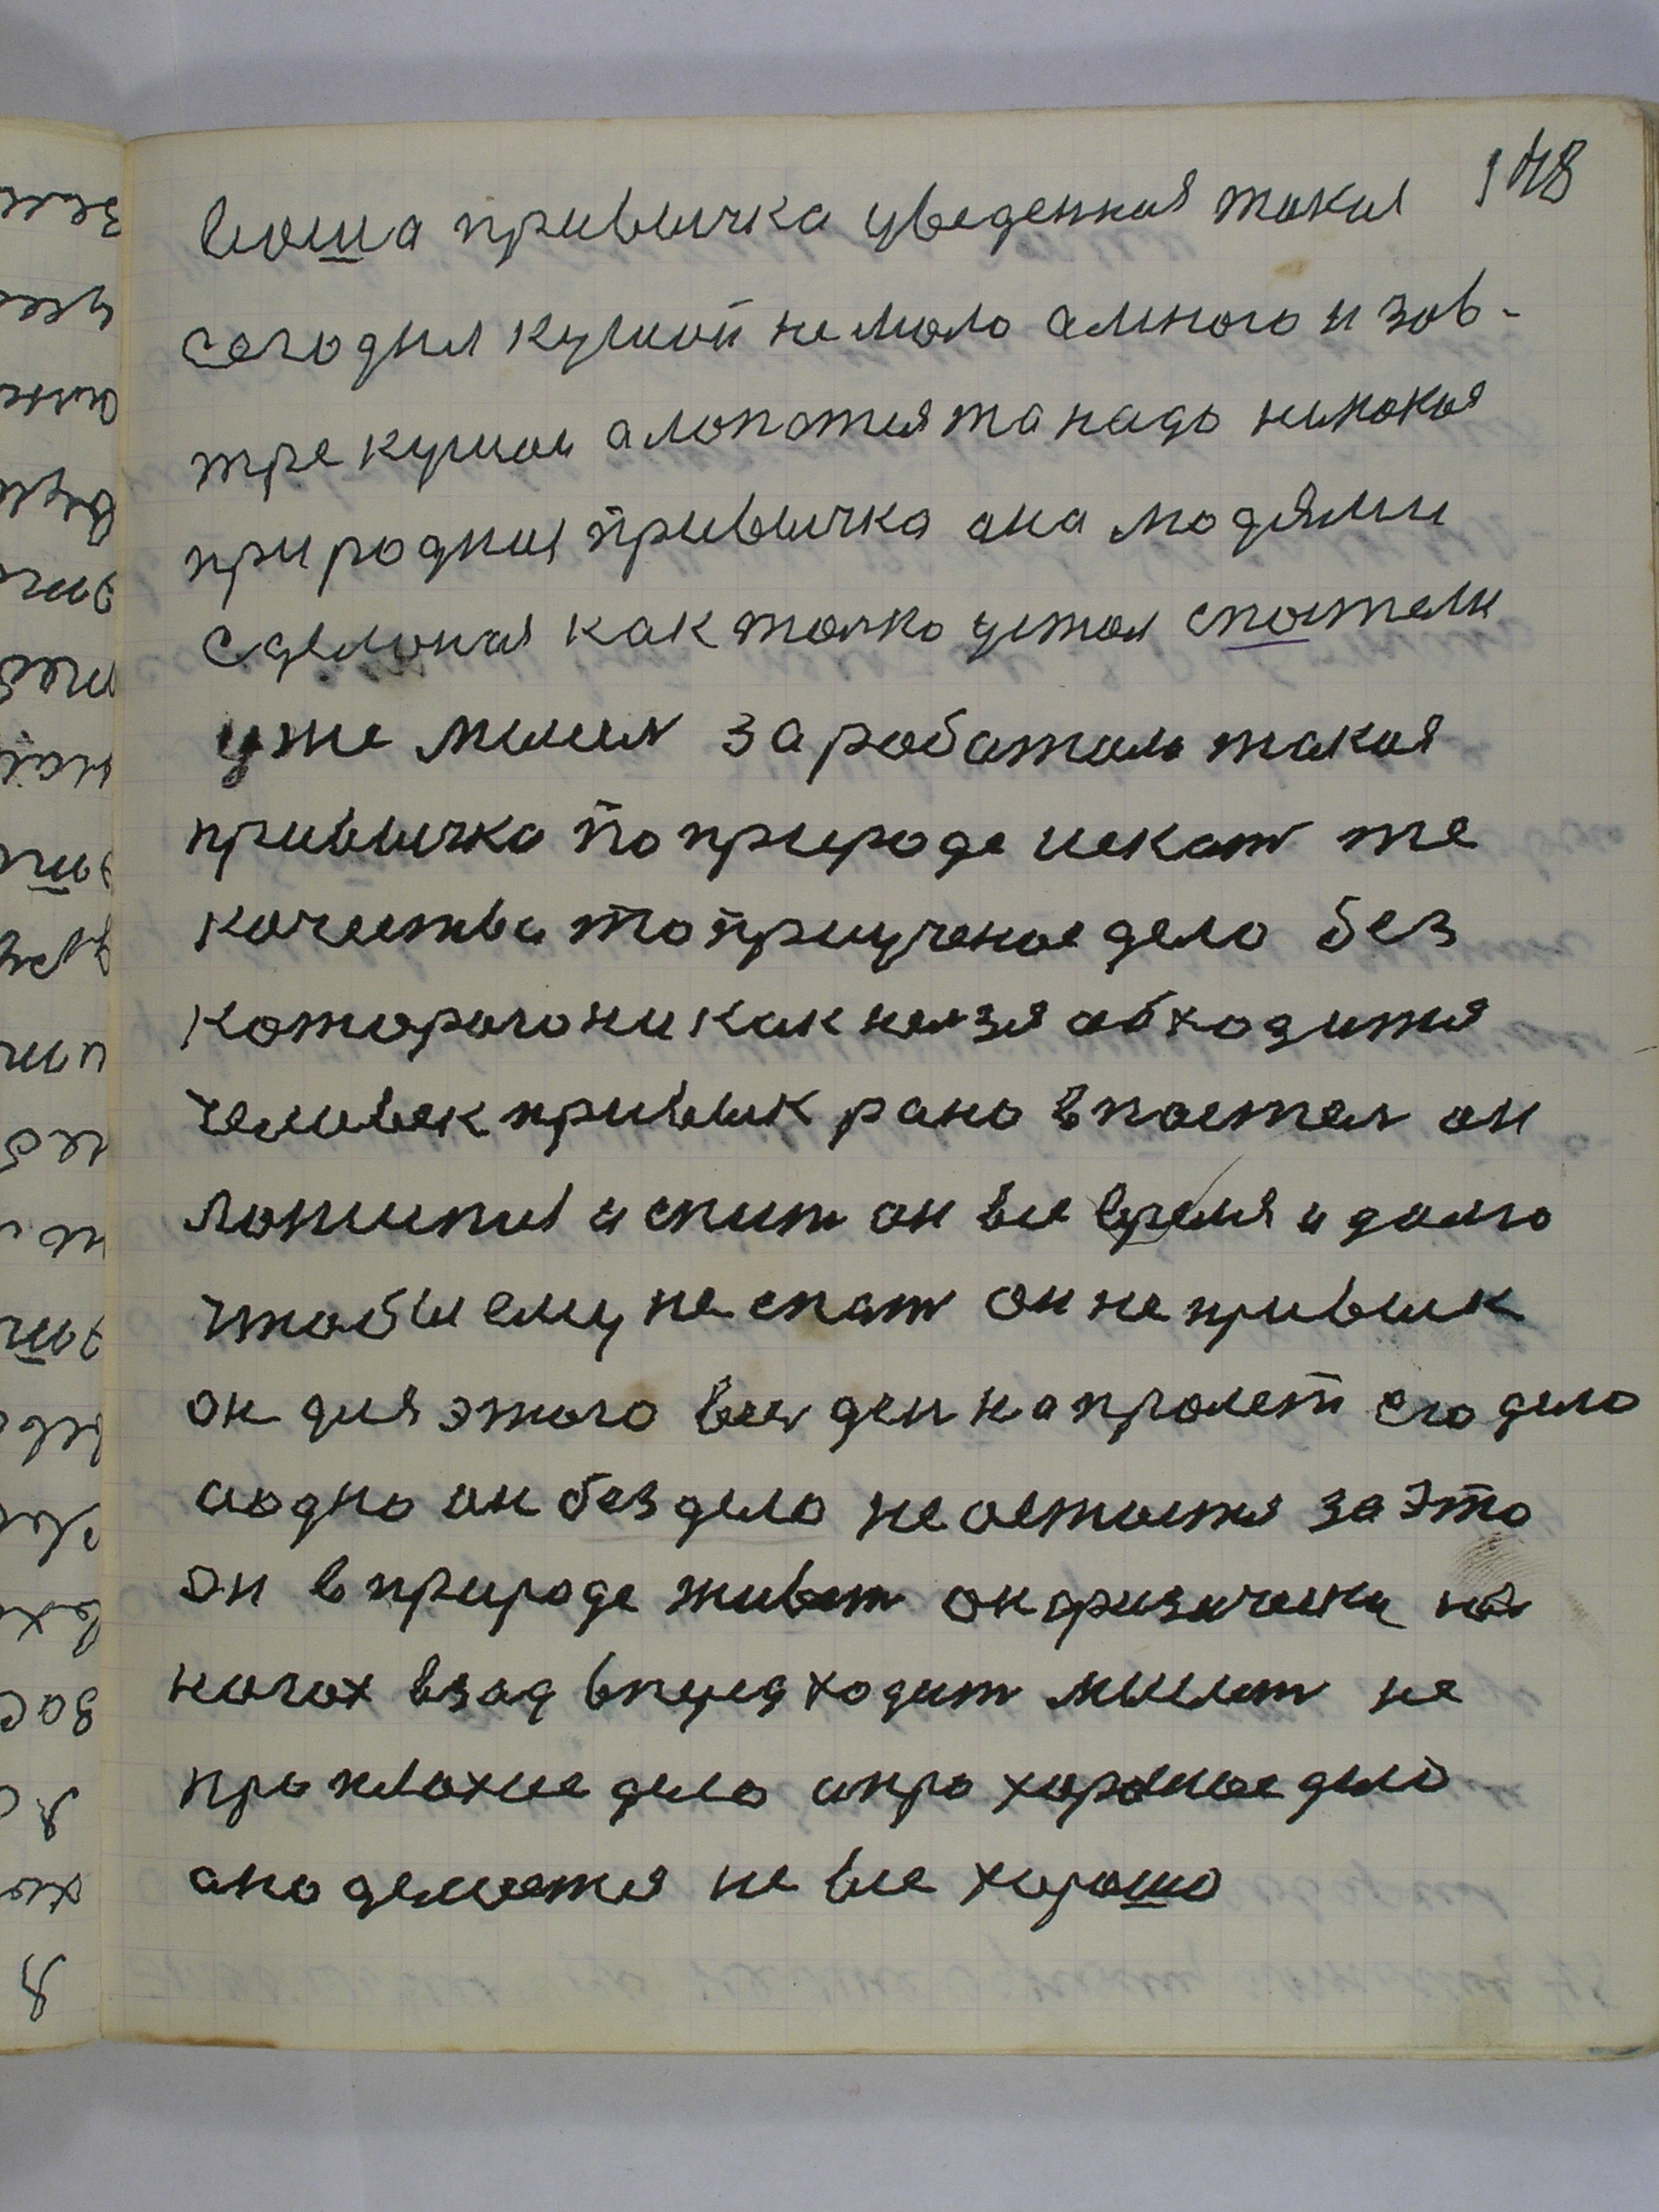 148
Ваша привычка уведенная такая
сегодня кушай не мало а много и зов-
тре кушай а лопотня та надо никокая
природная привычка ана людями
сделоная как толко устал с постели
уже мысля заработала такая
привычка по природе искат те
качества то приученое дело без
которого никак нелзя обходится
человек привык рано в постел он
ложится и спит он все время и долго
чтобы ему не спат он не привык
он для этого вес ден напролет его дело
аодно он без дела не остается за это
он в природе живет он физически на
ногах взад вперед ходит мыслит не
про плохие дело а про хорошое дело
ано делается не все хорошо